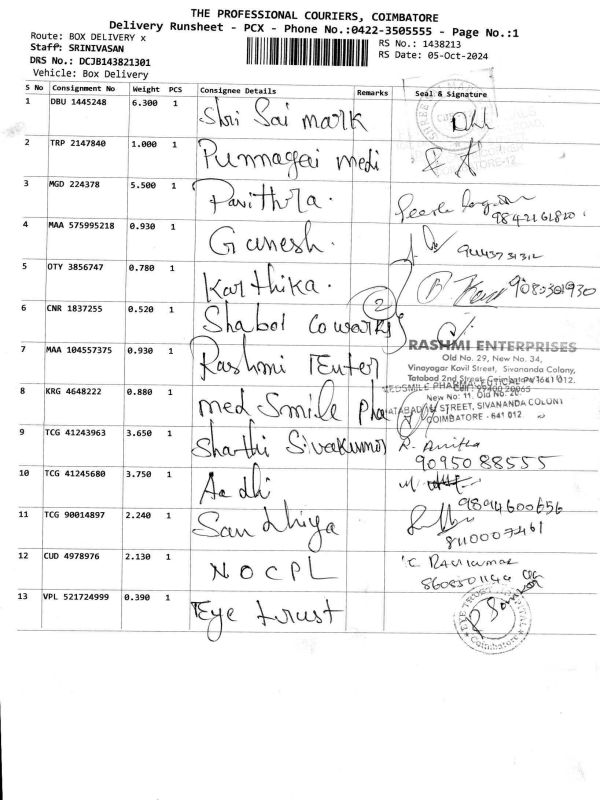 THE PROFESSIONAL COURIERS, COIMBATORE
Delivery Runsheet - PCX - Phone No.:0422-3505555 - Page No.:1
Route: BOX DELIVERY x
RS No.: 1438213
Staff: SRINIVASAN
RS Date: 05-Oct-2024
DRS No.: DCJB143821301
Vehicle: Box Delivery
S No Consignment No Weight PCS Consignee Details Remarks Seal & Signature
1 DBU 1445248 6.300 1 Shri Sai mark
2 TRP 2147840 1.000 1 Punnagai medi
3 MGD 224378 5.500 1 Pavithra. 9842161820
4 MAA 575995218 0.930 1 Ganesh.
5 OTY 3856747 0.780 1 Karthika. 9080301930
6 CNR 1837255 0.520 1 Shabol coworks 2
7 MAA 104557375 0.930 1 Rashmi Enter
RASHMI ENTERPRISES
Old No. 29, New No. 34,
Vinayagar Kovil Street, Sivananda Colony,
Tatabad 2nd Street, Coimbatore - 641 012.
8 KRG 4648222 0.880 1 med Smile pha
MEDSMILE PHARMACEUTICAL
New No: 11, Old No: 20
TATABAD STREET, SIVANANDA COLONY
COIMBATORE - 641 012
9 TCG 41243963 3.650 1 Sharthi Sivakumar R. Anitha
9095088555
10 TCG 41245680 3.750 1 Aadhi
9894600656
11 TCG 90014897 2.240 1 Sandhiya
8110007461
12 CUD 4978976 2.130 1 NOCPL C. Ravikumar
13 VPL 521724999 0.390 1 Eye trust
EYE TRUST HOSPITAL
Coimbatore